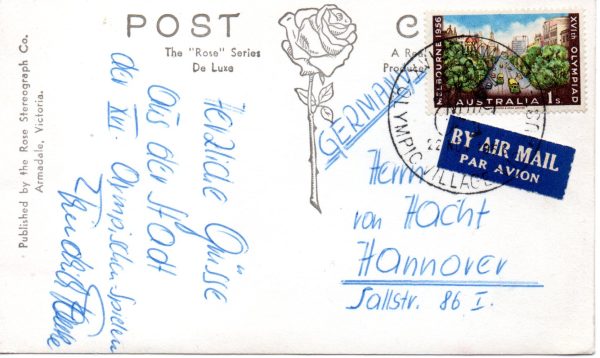 POST C
The "Rose" Series
De Luxe
A Real
Produce
MELBOURNE 1956
XVIth OLYMPIAD
AUSTRALIA 1s
OLYMPIC VILLAGE
BY AIR MAIL
PAR AVION
GERMANY
Herzliche Grüsse
aus der Stadt
der XVI. Olympischen Spielen
Herrn
von Hacht
Hannover
Sallstr. 86 I.
Published by the Rose Stereograph Co.
Armadale, Victoria.